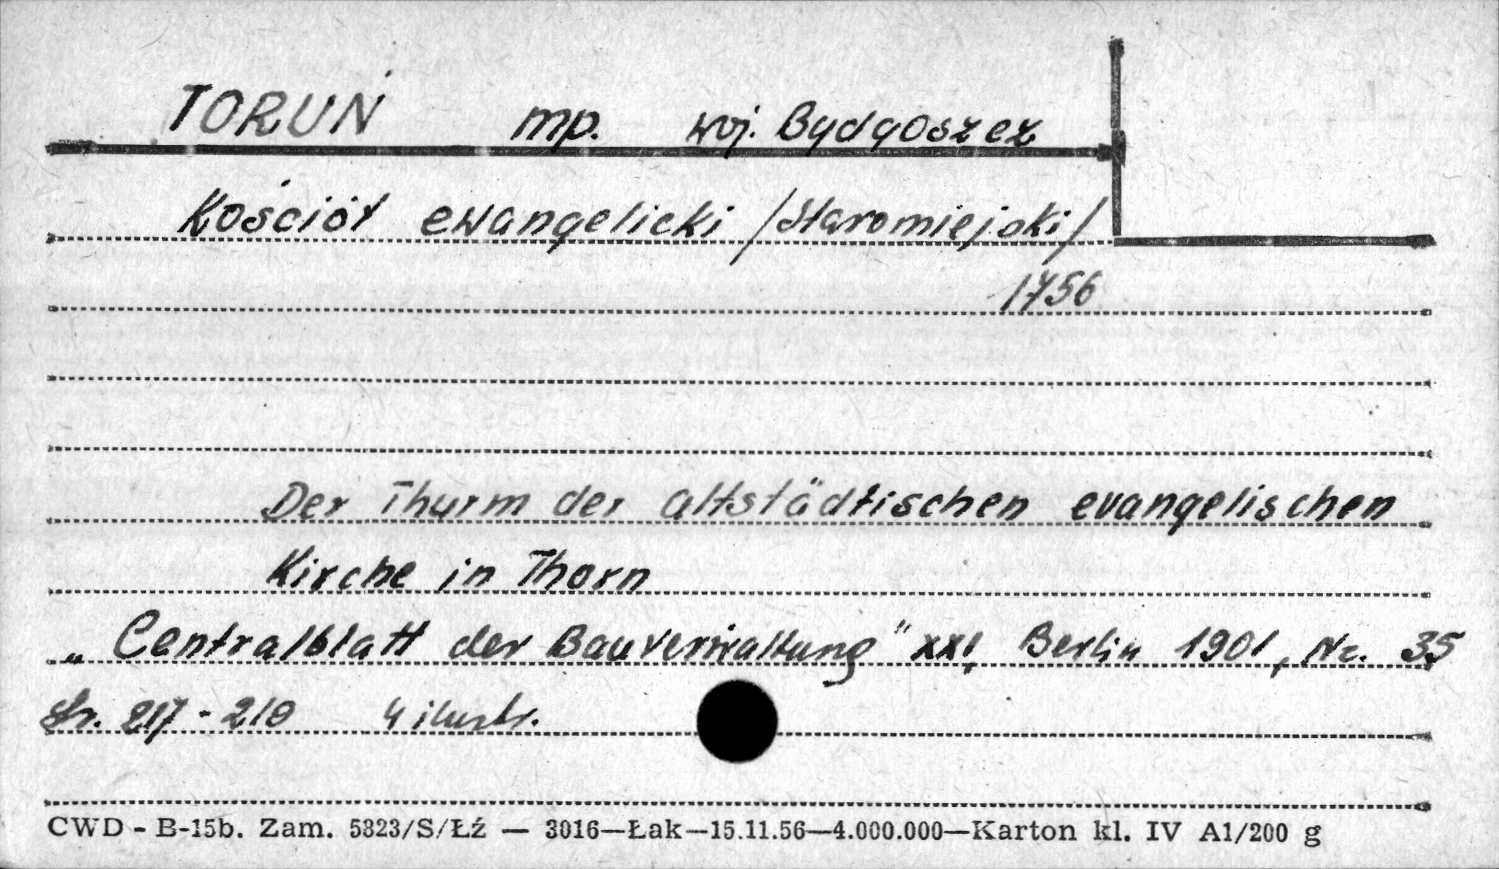 TORUŃ mp. woj. Bydgoszcz
Kościół ewangelicki /Staromiejski/
1756
Der Thurm der altstädtischen evangelischen
Kirche in Thorn
„Centralblatt der Bauverwaltung" XXI, Berlin 1901, Nr. 35
Str. 217-218 4 ilustr.
CWD - B-15b. Zam. 5323/S/Łź — 3016—Łak—15.11.56—4.000.000—Karton kl. IV A1/200 g